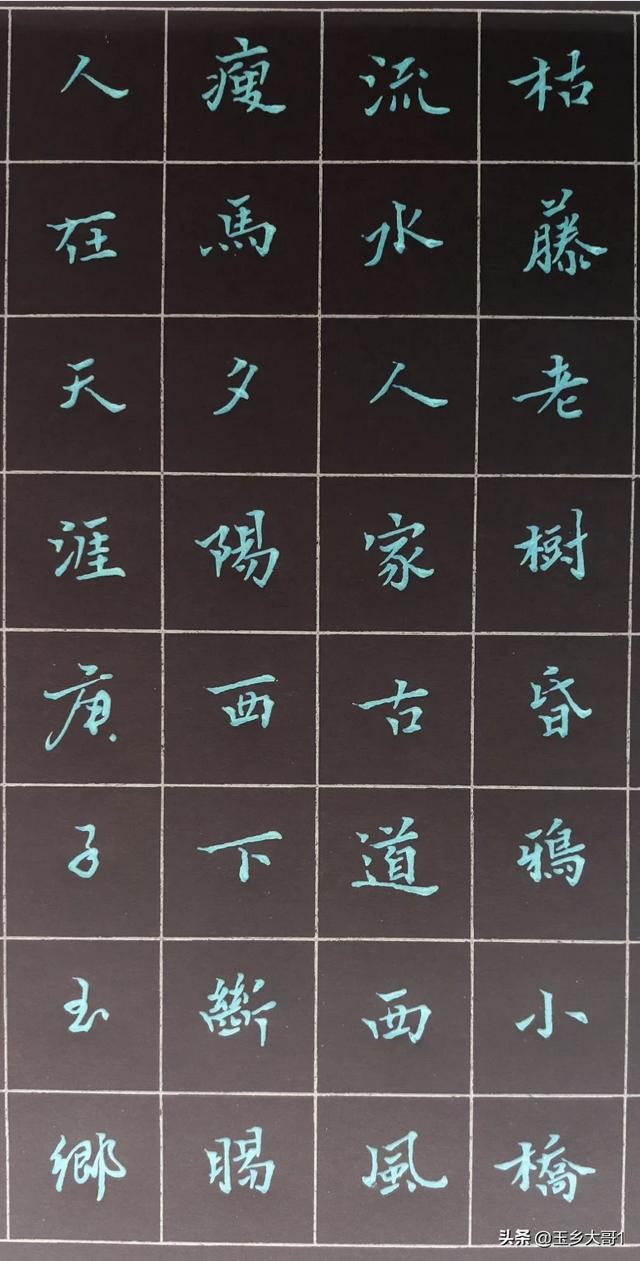 枯藤老樹昏鴉小橋
流水人家古道西風
瘦馬夕陽西下斷腸
人在天涯庚子玉鄉
头条 @玉乡大哥1